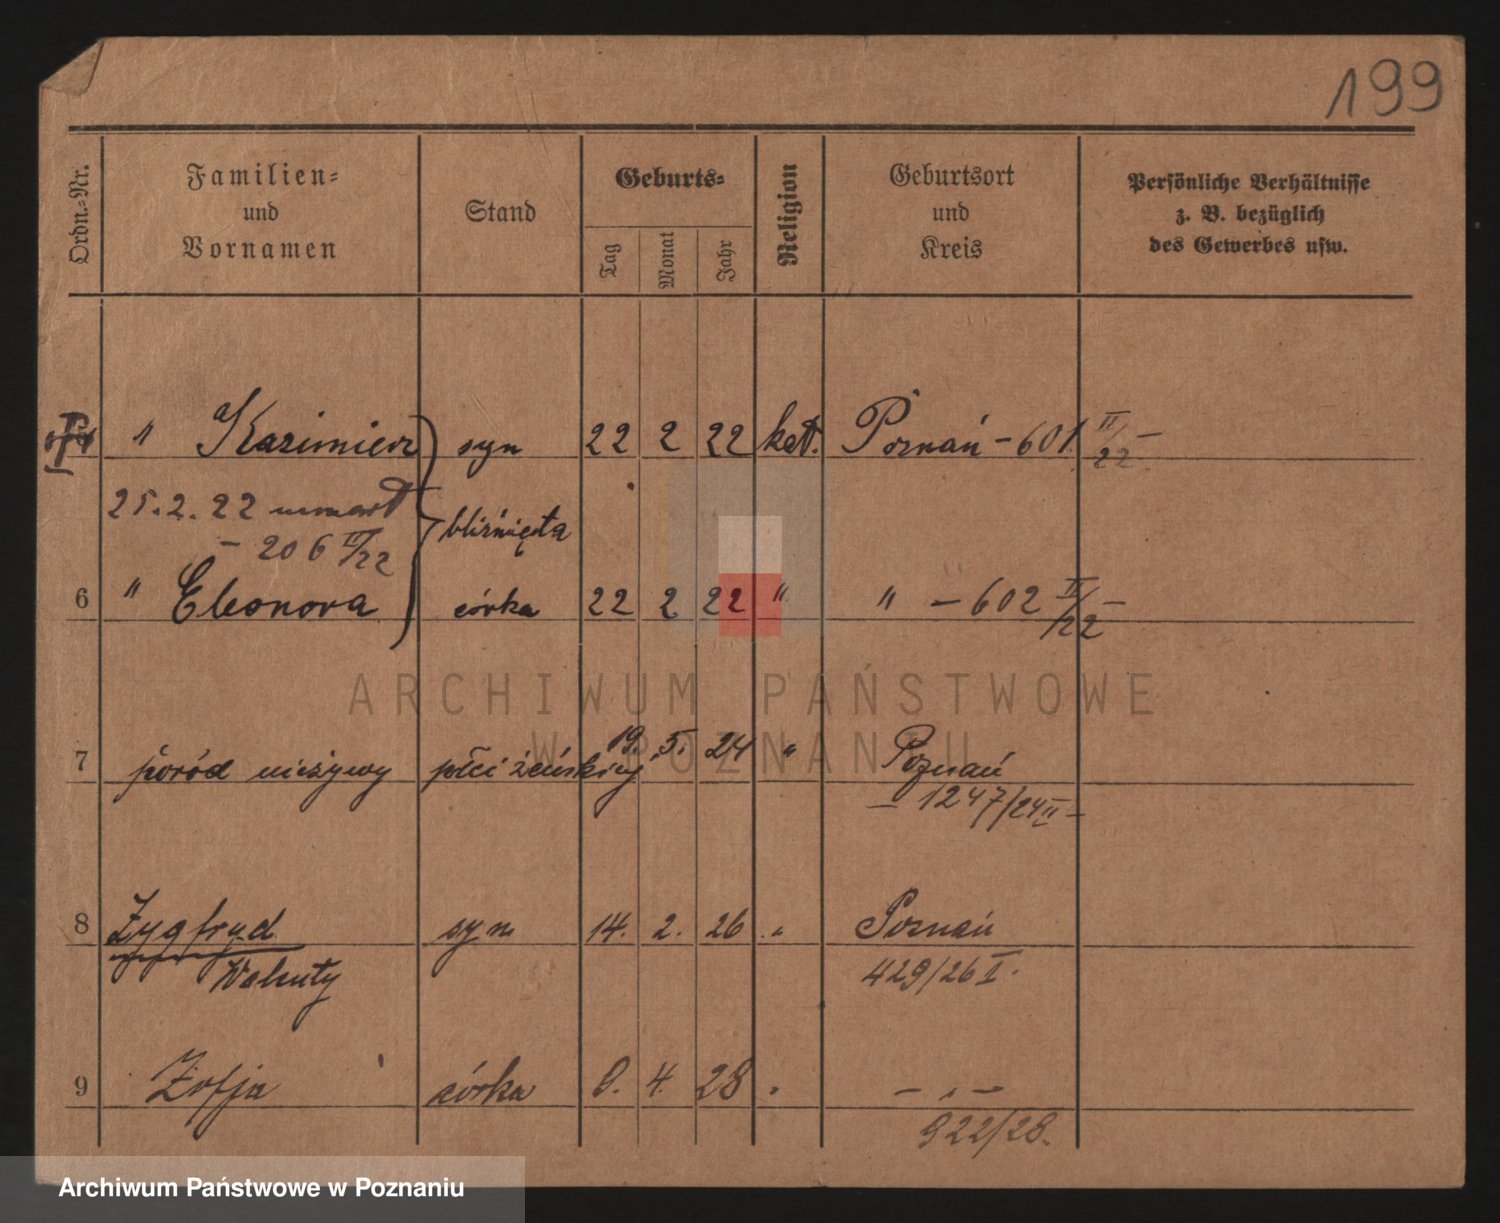 199
Ordn.-Nr.
Familien- und Vornamen
Stand
Geburts-
Tag
Monat
Jahr
Religion
Geburtsort und Kreis
Persönliche Verhältnisse z. B. bezüglich des Gewerbes usw.
" Kazimierz syn 22 2 22 kat. Poznań - 601 II/22 -
25.2.22 umarł bliźnięta
- 206 II/22
6 " Eleonora córka 22 2 22 " " - 602 II/22 -
7 poród nieżywy płci żeńskiej 19. 5. 24 " Poznań
- 1247/24 II -
8 Zygfryd syn 14. 2. 26 " Poznań
Walenty 429/26 I.
9 Zofja córka 4. 28 " - " -
922/28.
ARCHIWUM PAŃSTWOWE
W POZNANIU
Archiwum Państwowe w Poznaniu